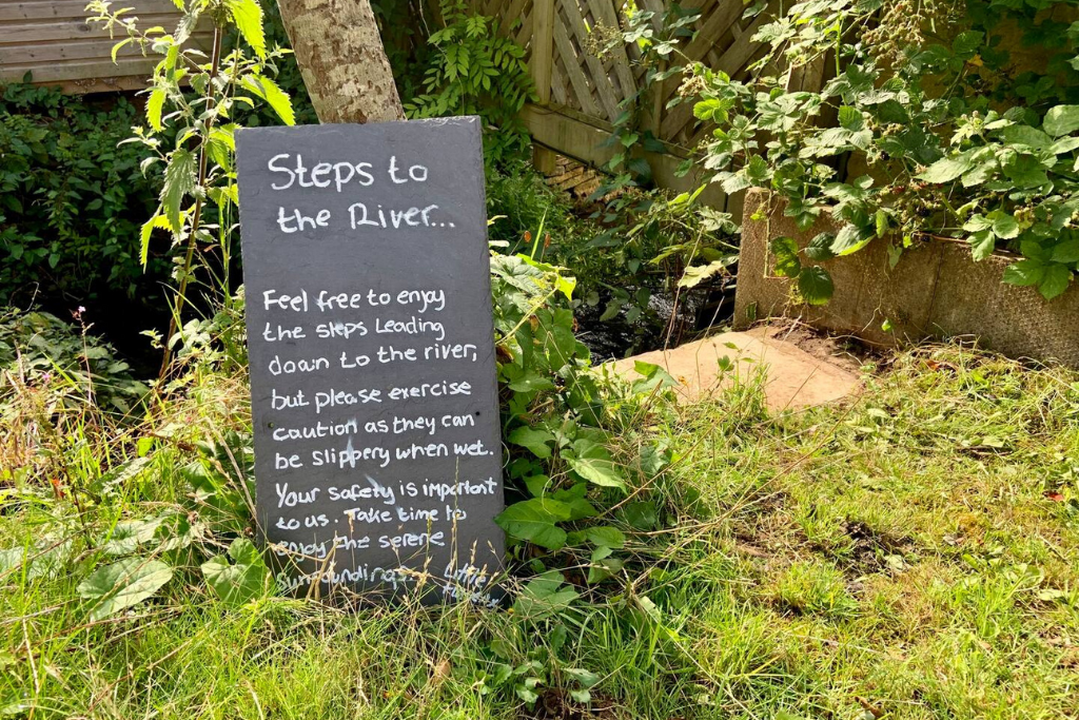 Steps to
the River...
Feel free to enjoy
the steps leading
down to the river,
but please exercise
caution as they can
be slippery when wet.
Your safety is important
to us. Take time to
enjoy the serene
Surroundings. Little